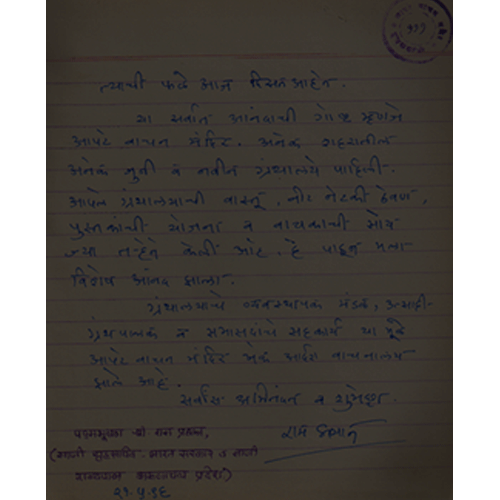 त्याची फळे आज दिसत आहेत.
या सर्वात आनंदाची गोष्ट म्हणजे
आपटे वाचन मंदिर. अनेक शहरातील
अनेक जुनी व नवीन ग्रंथालये पाहिली.
आपले ग्रंथालयाची वास्तू, नीट नेटकी ठेवण,
पुस्तकांची योजना व वाचकांची सोय
ज्या तऱ्हेने केली आहे. हे पाहून मला
विशेष आनंद झाला.
ग्रंथालयाचे व्यवस्थापक मंडळ, उत्साही
ग्रंथपालक व सभासदांचे सहकार्य या मुळे
आपटे वाचन मंदिर एक आदर्श वाचनालय
झाले आहे.
सर्वांस अभिनंदन व शुभेच्छा.
राम प्रधान
पद्मभूषण श्री. राम प्रधान,
(माजी गृहसचिव - भारत सरकार व माजी
राज्यपाल अरुणाचल प्रदेश)